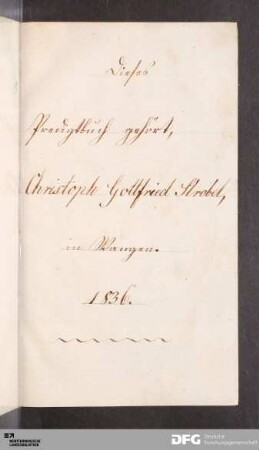 Dieses
Predigtbuch gehört,
Christoph Gottfried Strobel,
in Wangen.
1836.
WÜRTTEMBERGISCHE
LANDESBIBLIOTHEK
DFG Deutsche
Forschungsgemeinschaft